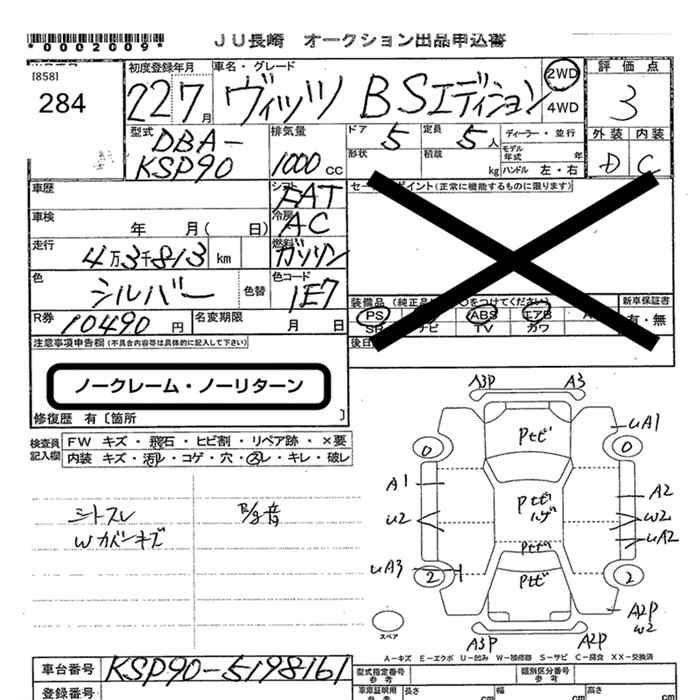 *0002009*
JU長崎 オークション出品申込書
[858]
284
初度登録年月
22 7月
車名・グレード
ヴィッツ BSエディション
2WD
4WD
評価点
3
外装 内装
D C
型式
DBA-
KSP90
排気量
1000 cc
ドア 5
定員 5人
ディーラー・並行
形状
積載 kg
モデル年式 年
ハンドル 左・右
車歴
シフト FAT
車検 年 月( 日)
冷房 AC
走行 4万3千813 km
燃料 ガソリン
色 シルバー
色替
色コード 1E7
R券 10490 円
名変期限 月 日
セールスポイント(正常に機能するものに限ります)
装備品 (純正品
○をつけてください)
新車保証書
有・無
PS
ABS エアB
ナビ TV カワ
後日
注意事項申告欄(不具合内容等は具体的に記入して下さい)
ノークレーム・ノーリターン
修復歴 有〔箇所 〕
検査員記入欄
FW キズ・飛石・ヒビ割・リペア跡・×要
内装 キズ・汚れ・コゲ・穴・スレ・キレ・破レ
シートスレ
Wカバンキズ
R/g音
A3P
A3
Ptビ
uA1
0
0
A1
A2
Ptビ
ハゲ
u2
w2
uA2
Ptビ
uA3
2
2
Ptビ
A2P
w2
スペア
A3P
A2P
A-キズ E-エクボ U-凹み W-補修跡 S-サビ C-腐食 XX-交換済
車台番号 KSP90-5198161
登録番号
型式指定番号
参考
類別区分番号
参考
車庫証明用
参考
長さ cm
幅 cm
高さ cm